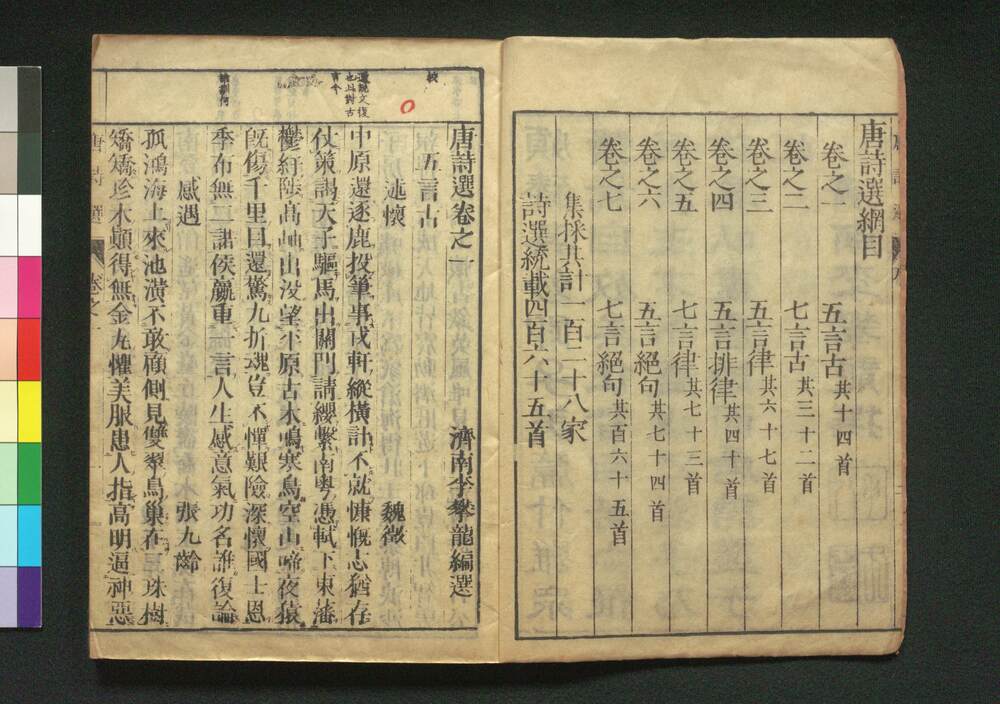 唐詩選綱目
卷之一 五言古共十四首
卷之二 七言古共三十二首
卷之三 五言律共六十七首
卷之四 五言排律共四十首
卷之五 七言律共七十三首
卷之六 五言絕句共七十四首
卷之七 七言絕句共百六十五首
集採共計一百二十八家
詩選統載四百六十五首
唐詩選卷之一
濟南李攀龍編選
五言古
述懷 魏徵
中原還逐鹿投筆事戎軒縱橫計不就慷慨志猶存
仗策謁天子驅馬出關門請纓繫南粵憑軾下東藩
鬱紆陟高岫出沒望平原古木鳴寒鳥空山啼夜猿
旣傷千里目還驚九折魂豈不憚艱險深懷國士恩
季布無二諾侯嬴重一言人生感意氣功名誰復論
感遇 張九齡
孤鴻海上來池潢不敢顧側見雙翠鳥巢在三珠樹
矯矯珍木巔得無金丸懼美服患人指高明逼神惡
唐詩選 卷之一